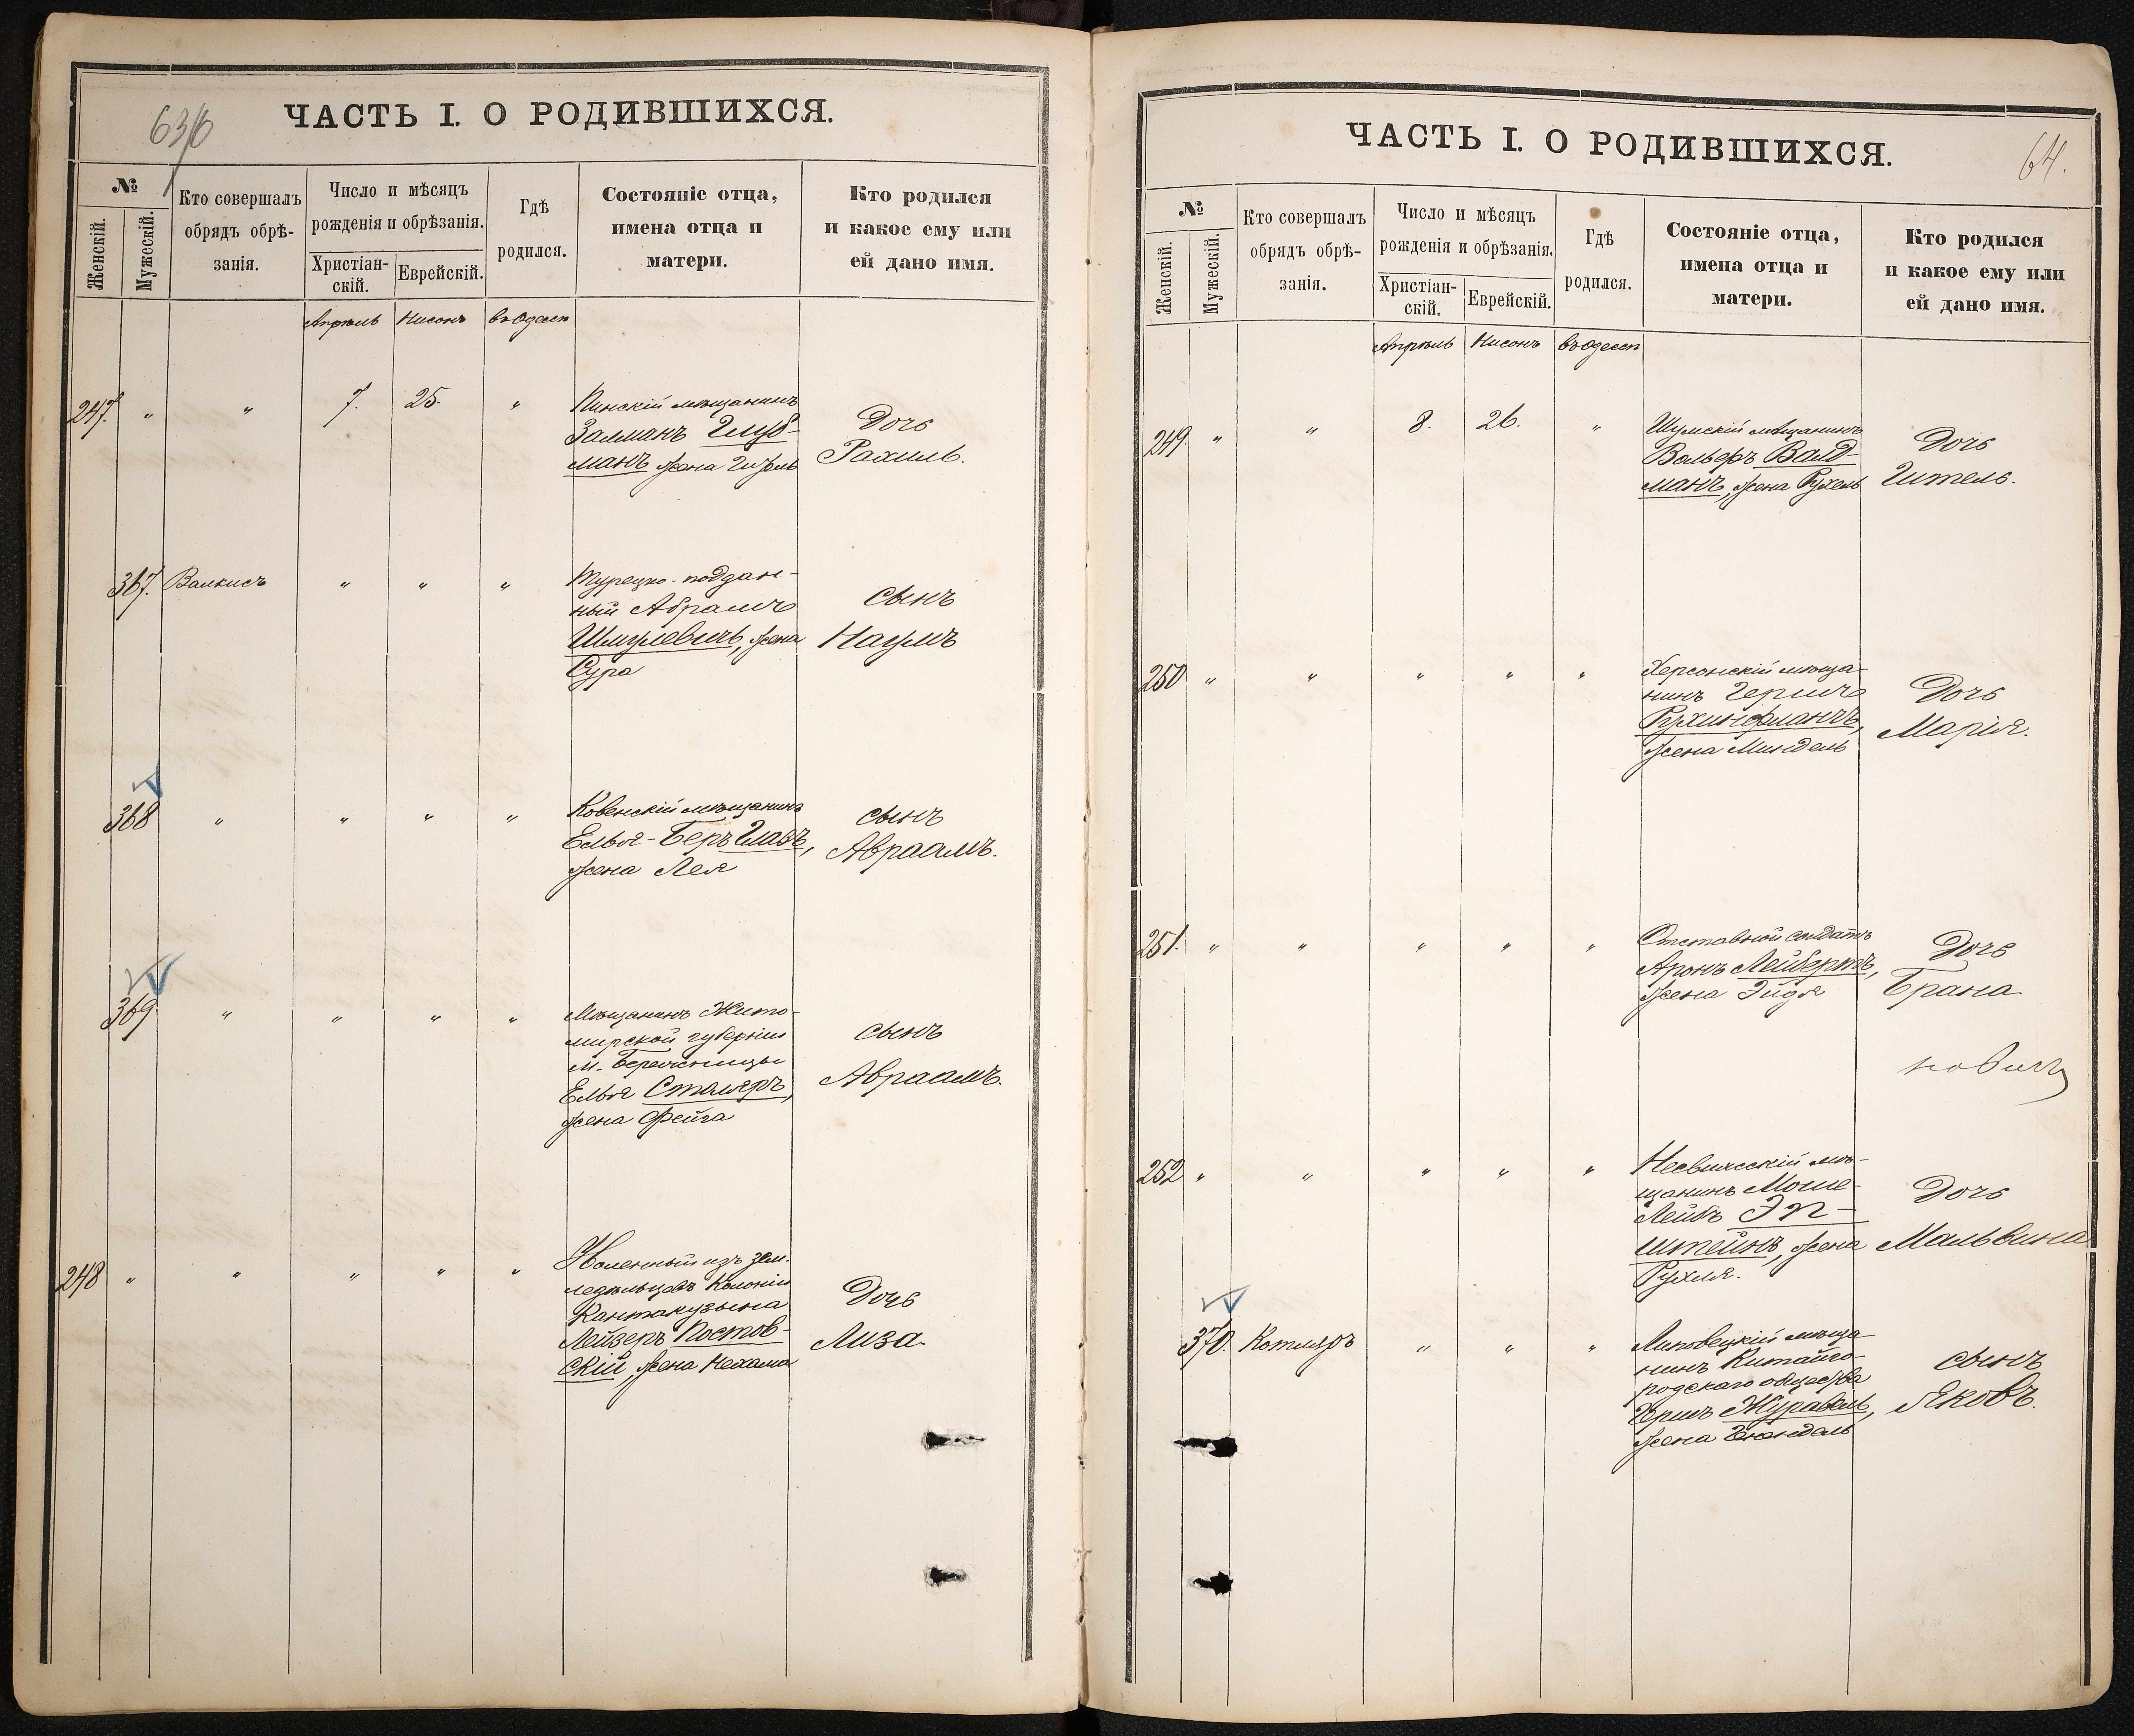 63/б
ЧАСТЬ I. О РОДИВШИХСЯ.
№
Женскій.
Мужескій.
Кто совершалъ
обрядъ обрѣ-
занія.
Число и мѣсяцъ
рожденія и обрѣзанія.
Христіан-
скій.
Еврейскій.
Гдѣ
родился.
Состояніе отца,
имена отца и
матери.
Кто родился
и какое ему или
ей дано имя.
Апрѣль Нисонъ въ Одессѣ
247. " " 7. 25. "
Пинскій мѣщанинъ
Залманъ Глуз-
манъ жена
Дочь
Рахиль.
367. Валкисъ " " "
Турецко-поддан-
ный Абрамъ
Шмулевичъ, жена
Сура
сынъ
Наумъ
368 " " " "
Ковенскій мѣщанинъ
Елья-Беръ Глазъ,
жена Лея
сынъ
Авраамъ.
369 " " " "
Мѣщанинъ Жито-
мирской губерніи
м.
Елья Столяръ,
жена Фейга
сынъ
Авраамъ.
248 " " " " "
изъ зем-
ледѣльцевъ Колоніи
Кантакузина
Лейзеръ Постов-
скій, жена Нехама
Дочь
Лиза.
64.
ЧАСТЬ I. О РОДИВШИХСЯ.
№
Женскій.
Мужескій.
Кто совершалъ
обрядъ обрѣ-
занія.
Число и мѣсяцъ
рожденія и обрѣзанія.
Христіан-
скій.
Еврейскій.
Гдѣ
родился.
Состояніе отца,
имена отца и
матери.
Кто родился
и какое ему или
ей дано имя.
Апрѣль Нисонъ въ Одессѣ
249. " " 8. 26. "
Шумскій мѣщанинъ
Вольфъ Валд-
манъ, жена Рухель
Дочь
Гитель.
250 " " " " "
Херсонскій мѣща-
нинъ Гершъ
Рухинфманъ,
жена Миндель
Дочь
Марія.
251. " " " " "
Отставной солдатъ
Аронъ Лейбертъ,
жена Эйдя
Дочь
Брана
новичъ
252 " " " " "
Несвижскій мѣ-
щанинъ Моше-
Лейбъ Эп-
штейнъ, жена
Рухля.
Дочь
Мальвина
370. Котляръ " " "
Липовецкій мѣща
нинъ Китайго-
родскаго общества
Гершъ Журавель,
жена
сынъ
Яковъ.